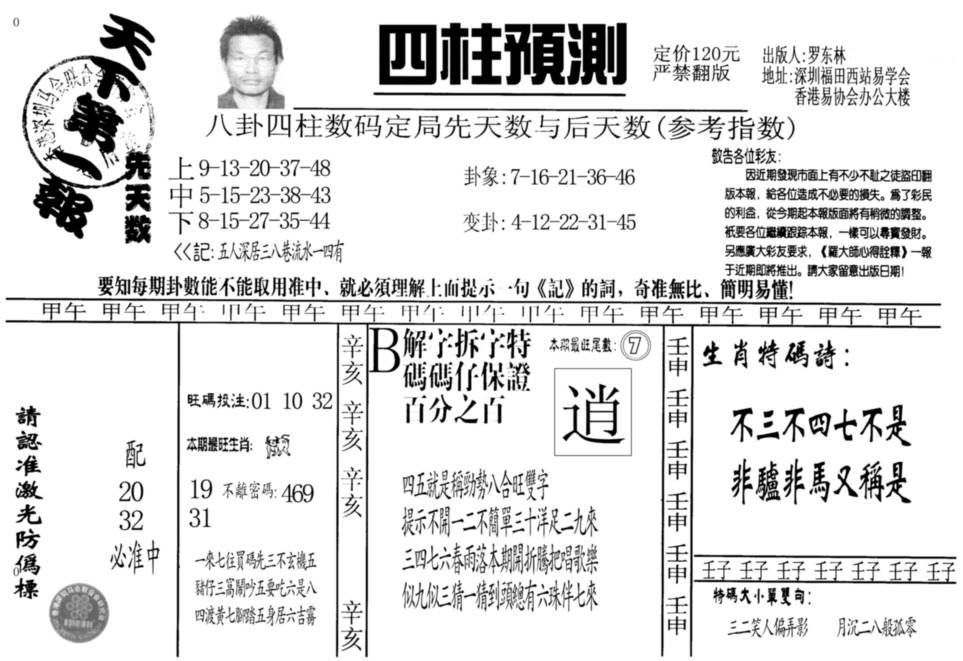 0
天下第一報
先天数
四柱預測
定价120元
严禁翻版
出版人:罗东林
地址:深圳福田西站易学会
香港易协会办公大楼
八卦四柱数码定局先天数与后天数(参考指数)
上 9-13-20-37-48
中 5-15-23-38-43
下 8-15-27-35-44
<<記: 五人深居三八巷流水一四有
卦象: 7-16-21-36-46
变卦: 4-12-22-31-45
敬告各位彩友:
因近期發現市面上有不少不耻之徒盜印翻
版本報，給各位造成不必要的損失。爲了彩民
的利益，從今期起本報版面將有稍微的調整。
祇要各位繼續跟踪本報，一樣可以尋寶發財。
另應廣大彩友要求，《羅大師心得詮釋》一報
于近期即將推出。請大家留意出版日期!
要知每期卦數能不能取用准中、就必須理解上面提示一句《記》的詞，奇准無比、簡明易懂!
甲午 甲午 甲午 甲午 甲午 甲午 甲午 甲午 甲午 甲午 甲午 甲午 甲午 甲午 甲午
請認准激光防僞標
配
20
32
必准中
旺碼投注: 01 10 32
本期最旺生肖:
19 不離密碼: 469
31
一來七往買碼先三不玄機五
豬仔三窩鬧吵五要吃六是八
四渡黃七腳踏五身居六吉霧
辛亥
辛亥
辛亥
辛亥
B解字拆字特
碼碼仔保證
百分之百
本期最旺尾數: 7
逍
四五就是稱勁勢八合旺雙字
提示不開一二不簡單三十洋足二九來
三四七六春雨落本期開折騰把唱歌樂
似九似三猜一猜到頭總有六珠伴七來
壬申
壬申
壬申
壬申
壬申
壬申
生肖特碼詩:
不三不四七不是
非驢非馬又稱是
壬子 壬子 壬子 壬子 壬子 壬子 壬子
特碼大小單雙句:
三二笑人偏弄影 月沉二八般孤零